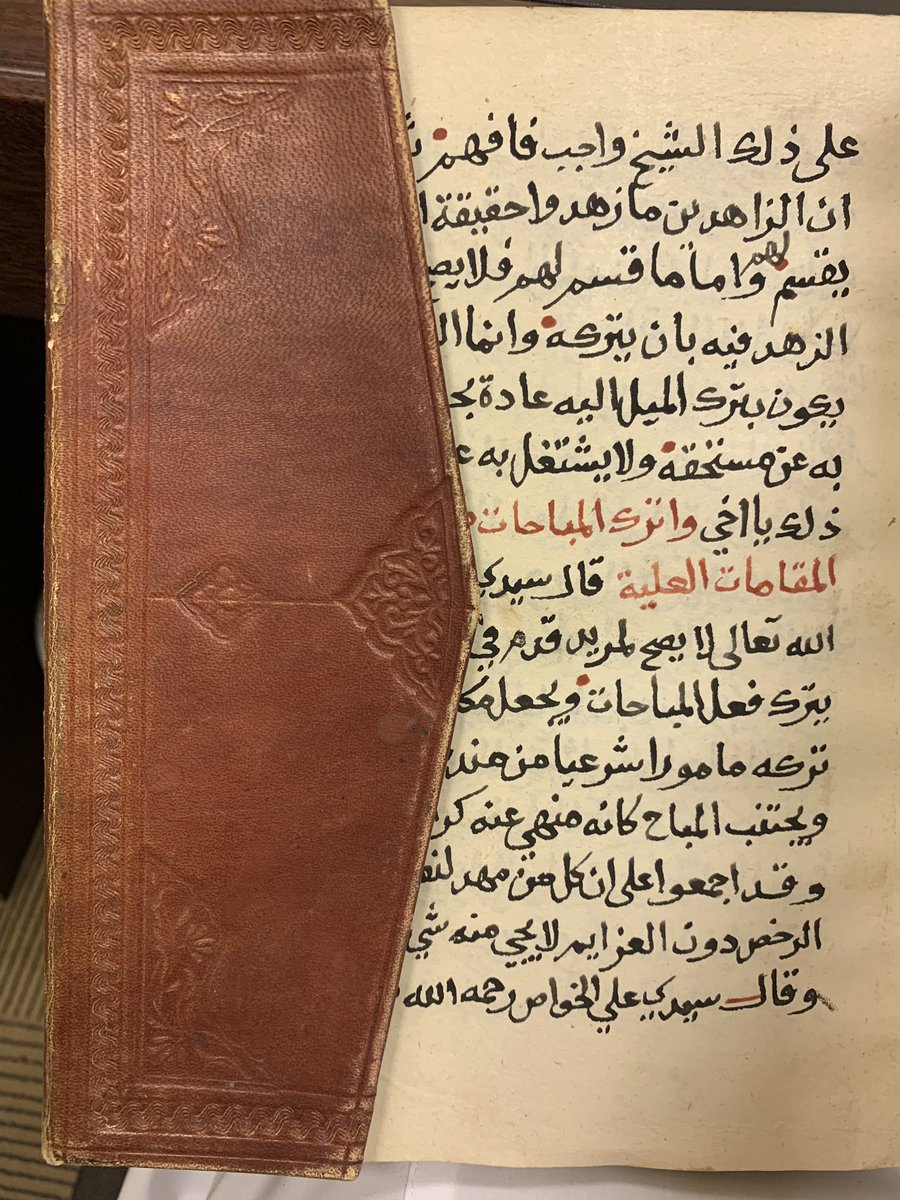 على ذلك الشيخ واجب فافهم
ان الزاهدين ما زهدوا حقيقة
يقسم لهم واما ما قسم لهم فلا يصح
الزهد فيه بان يتركه وانما
يكون بترك الميل اليه عادة
به عن مستحقه ولا يشتغل به
ذلك يا اخي واترك المباحات
المقامات العلية قال سيدي
الله تعالى لا يصح لمريد قدم في
يترك فعل المباحات ويجعل
تركه مامورا شرعيا من
ويجتنب المباح كانه منهي عنه
وقد اجمعوا على ان كل من مهد
الرخص دون العزايم لا يجي منه شي
وقال سيدي علي الخواص رحمه الله